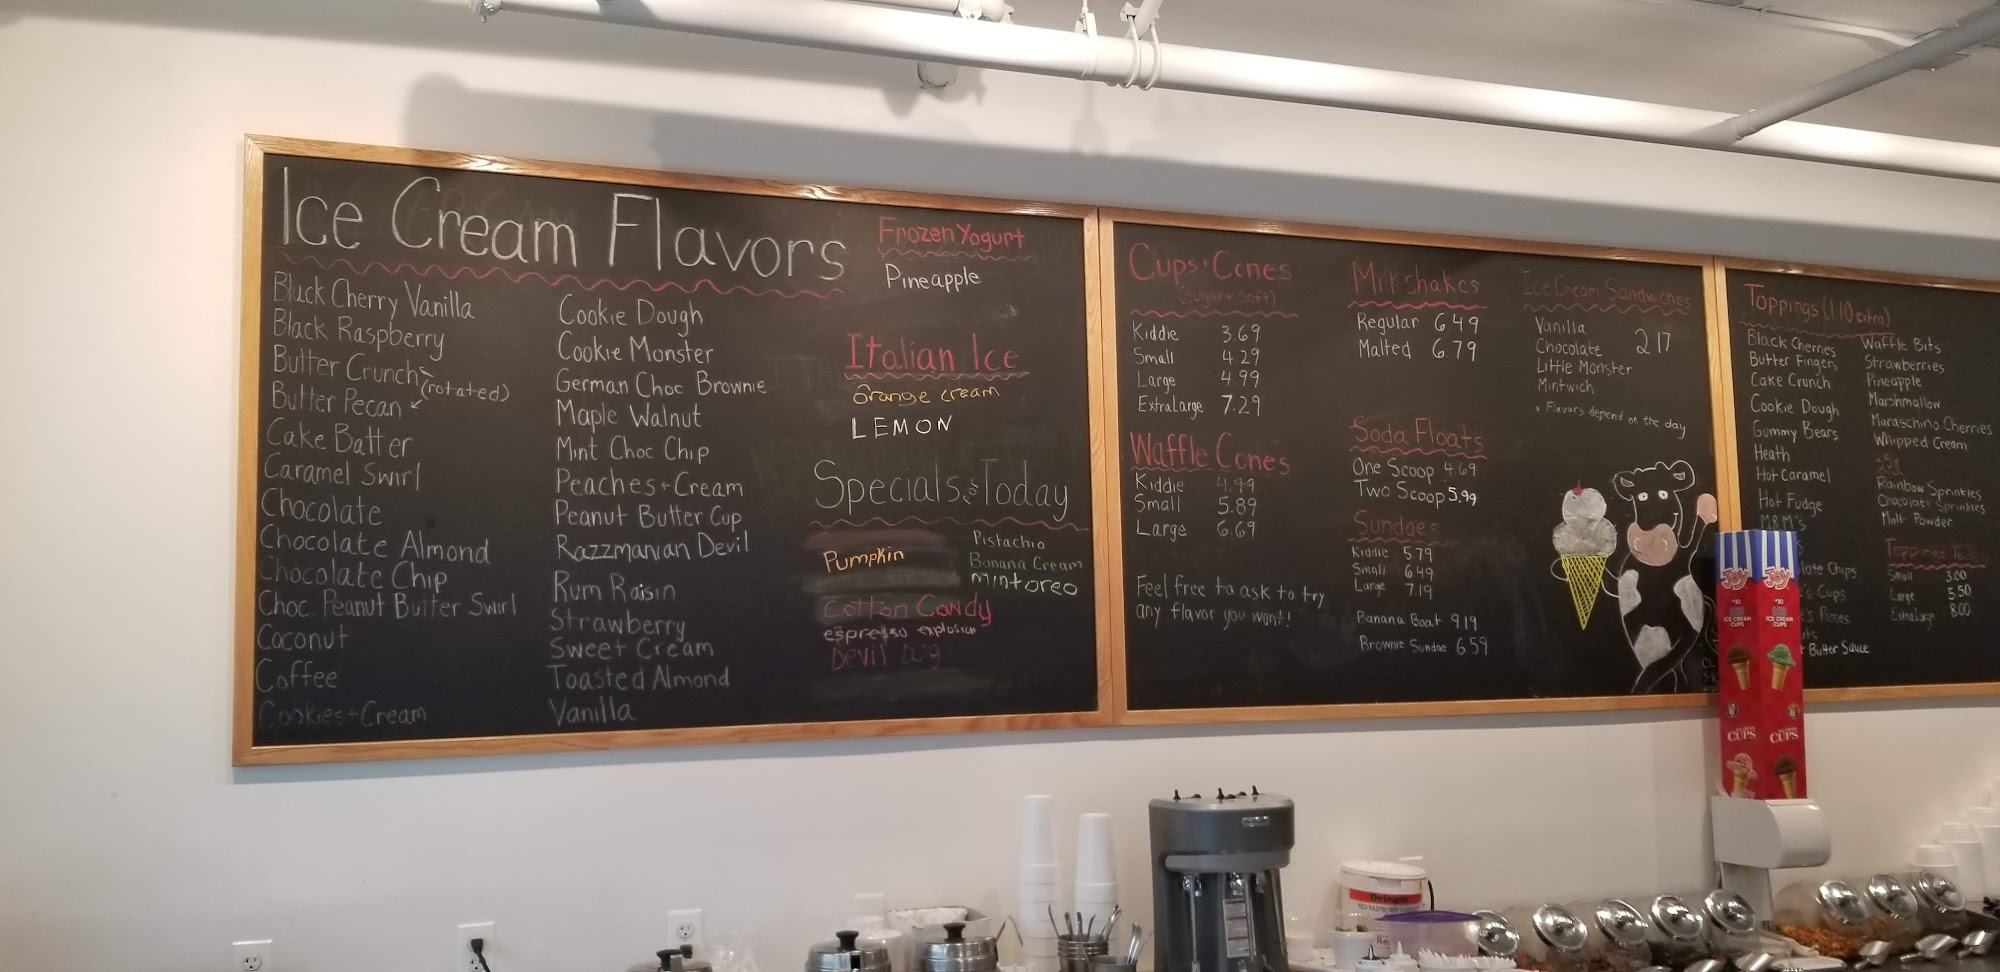 Ice Cream Flavors
Black Cherry Vanilla
Black Raspberry
Butter Crunch
(rotated)
Butter Pecan
Cake Batter
Caramel Swirl
Chocolate
Chocolate Almond
Chocolate Chip
Choc. Peanut Butter Swirl
Coconut
Coffee
Cookies + Cream
Cookie Dough
Cookie Monster
German Choc Brownie
Maple Walnut
Mint Choc Chip
Peaches + Cream
Peanut Butter Cup
Razzmanian Devil
Rum Raisin
Strawberry
Sweet Cream
Toasted Almond
Vanilla
Frozen Yogurt
Pineapple
Italian Ice
Orange cream
LEMON
Specials for Today
Pumpkin
Cotton Candy
espresso explosion
Devil Dog
Pistachio
Banana Cream
mint oreo
Cups + Cones
(sugar + soft)
Kiddie 3.69
Small 4.29
Large 4.99
Extra Large 7.29
Waffle Cones
Kiddie 4.99
Small 5.89
Large 6.69
Feel free to ask to try
any flavor you want!!
Milkshakes
Regular 6.49
Malted 6.79
Soda Floats
One Scoop 4.69
Two Scoop 5.99
Sundaes
Kiddie 5.79
Small 6.49
Large 7.19
Banana Boat 9.19
Brownie Sundae 6.59
Ice Cream Sandwiches
Vanilla
Chocolate 2.17
Little Monster
Mintwich
* Flavors depend on the day
Toppings (1.10 extra)
Black Cherries
Butter Fingers
Cake Crunch
Cookie Dough
Gummy Bears
Heath
Hot Caramel
Hot Fudge
M&M's
late Chips
's Cups
's Pieces
Butter Sauce
Waffle Bits
Strawberries
Pineapple
Marshmallow
Maraschino Cherries
Whipped Cream
Rainbow Sprinkles
Chocolate Sprinkles
Malt Powder
Toppings To
Small 3.00
Large 5.50
Extra Large 8.00
JOY JOY
ICE CREAM CUPS ICE CREAM CUPS
CUPS CUPS